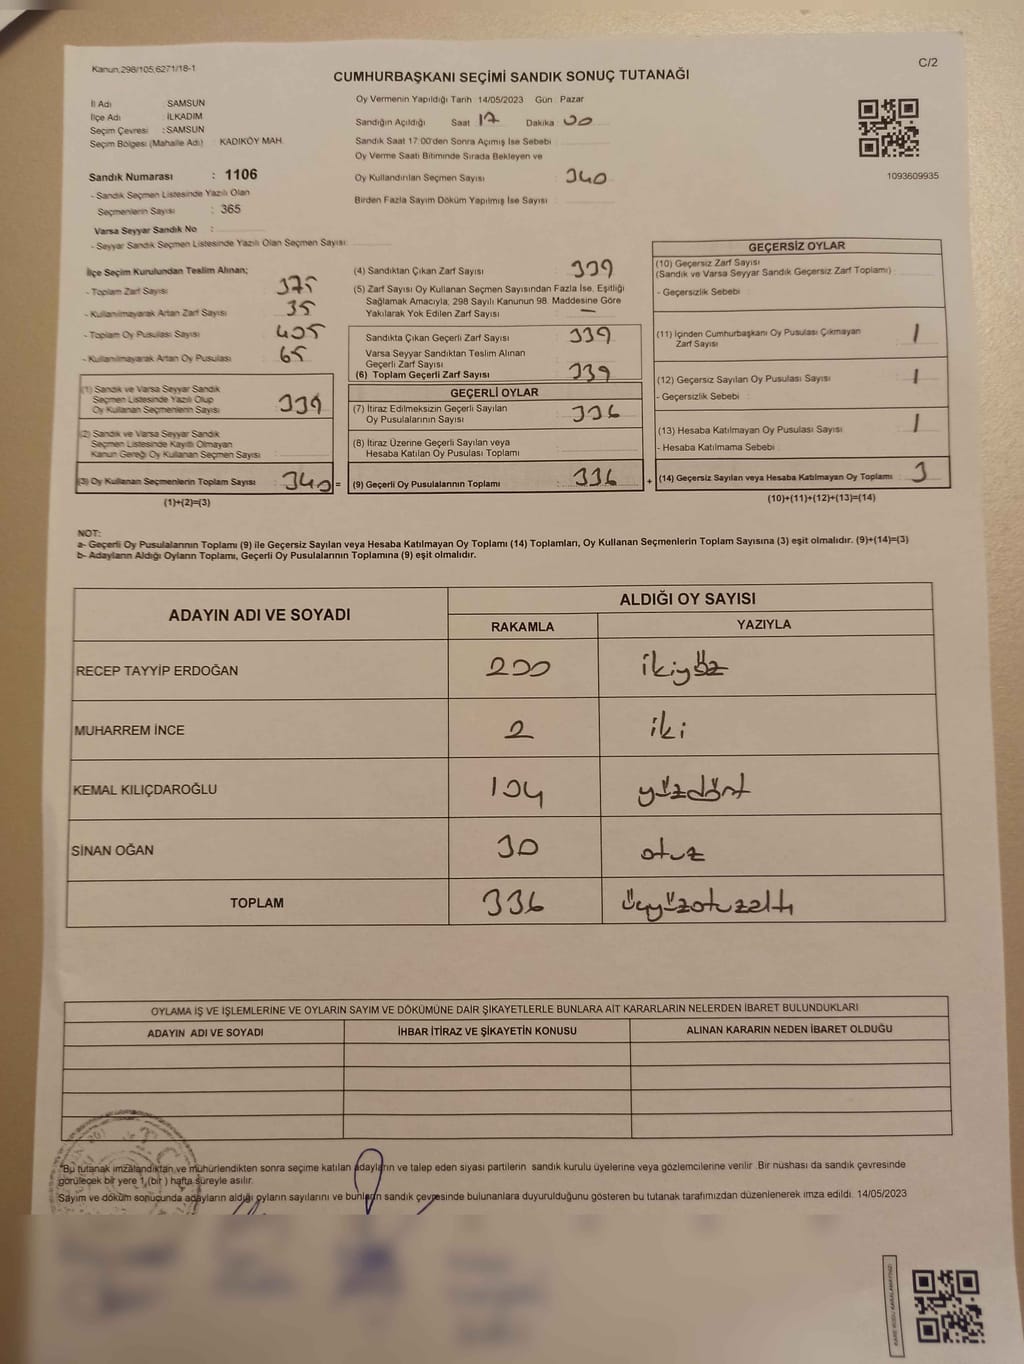 Kanun;298/105,6271/18-1
C/2
CUMHURBAŞKANI SEÇİMİ SANDIK SONUÇ TUTANAĞI
İl Adı : SAMSUN
İlçe Adı : İLKADIM
Seçim Çevresi : SAMSUN
Seçim Bölgesi (Mahalle Adı) : KADIKÖY MAH.
Sandık Numarası : 1106
- Sandık Seçmen Listesinde Yazılı Olan
Seçmenlerin Sayısı : 365
Varsa Seyyar Sandık No :
- Seyyar Sandık Seçmen Listesinde Yazılı Olan Seçmen Sayısı:
Oy Vermenin Yapıldığı Tarih 14/05/2023 Gün : Pazar
Sandığın Açıldığı Saat 17 Dakika 00
Sandık Saat 17:00'den Sonra Açımış İse Sebebi
Oy Verme Saati Bitiminde Sırada Bekleyen ve
Oy Kullandırılan Seçmen Sayısı : 340
Birden Fazla Sayım Döküm Yapılmış İse Sayısı
1093609935
İlçe Seçim Kurulundan Teslim Alınan;
- Toplam Zarf Sayısı : 375
- Kullanılmayarak Artan Zarf Sayısı : 35
- Toplam Oy Pusulası Sayısı : 405
- Kullanılmayarak Artan Oy Pusulası : 65
(1) Sandık ve Varsa Seyyar Sandık
Seçmen Listesinde Yazılı Olup
Oy Kullanan Seçmenlerin Sayısı : 339
(2) Sandık ve Varsa Seyyar Sandık
Seçmen Listesinde Kayıtlı Olmayan
Kanun Gereği Oy Kullanan Seçmen Sayısı :
(3) Oy Kullanan Seçmenlerin Toplam Sayısı : 340 =
(1)+(2)=(3)
(4) Sandıktan Çıkan Zarf Sayısı : 339
(5) Zarf Sayısı Oy Kullanan Seçmen Sayısından Fazla İse, Eşitliği
Sağlamak Amacıyla; 298 Sayılı Kanunun 98. Maddesine Göre
Yakılarak Yok Edilen Zarf Sayısı : —
Sandıkta Çıkan Geçerli Zarf Sayısı : 339
Varsa Seyyar Sandıktan Teslim Alınan
Geçerli Zarf Sayısı :
(6) Toplam Geçerli Zarf Sayısı : 339
GEÇERLİ OYLAR
(7) İtiraz Edilmeksizin Geçerli Sayılan
Oy Pusulalarının Sayısı : 336
(8) İtiraz Üzerine Geçerli Sayılan veya
Hesaba Katılan Oy Pusulası Toplamı :
(9) Geçerli Oy Pusulalarının Toplamı : 336 +
GEÇERSİZ OYLAR
(10) Geçersiz Zarf Sayısı
(Sandık ve Varsa Seyyar Sandık Geçersiz Zarf Toplamı)
- Geçersizlik Sebebi :
(11) İçinden Cumhurbaşkanı Oy Pusulası Çıkmayan
Zarf Sayısı : 1
(12) Geçersiz Sayılan Oy Pusulası Sayısı : 1
- Geçersizlik Sebebi :
(13) Hesaba Katılmayan Oy Pusulası Sayısı : 1
- Hesaba Katılmama Sebebi :
(14) Geçersiz Sayılan veya Hesaba Katılmayan Oy Toplamı : 3
(10)+(11)+(12)+(13)=(14)
NOT:
a- Geçerli Oy Pusulalarının Toplamı (9) ile Geçersiz Sayılan veya Hesaba Katılmayan Oy Toplamı (14) Toplamları, Oy Kullanan Seçmenlerin Toplam Sayısına (3) eşit olmalıdır. (9)+(14)=(3)
b- Adayların Aldığı Oyların Toplamı, Geçerli Oy Pusulalarının Toplamına (9) eşit olmalıdır.
ADAYIN ADI VE SOYADI
ALDIĞI OY SAYISI
RAKAMLA YAZIYLA
RECEP TAYYİP ERDOĞAN 200 ikiyüz
MUHARREM İNCE 2 iki
KEMAL KILIÇDAROĞLU 104 yüzdört
SİNAN OĞAN 30 otuz
TOPLAM 336 üçyüzotuzaltı
OYLAMA İŞ VE İŞLEMLERİNE VE OYLARIN SAYIM VE DÖKÜMÜNE DAİR ŞİKAYETLERLE BUNLARA AİT KARARLARIN NELERDEN İBARET BULUNDUKLARI
ADAYIN ADI VE SOYADI İHBAR İTİRAZ VE ŞİKAYETİN KONUSU ALINAN KARARIN NEDEN İBARET OLDUĞU
"Bu tutanak imzalandıktan ve mühürlendikten sonra seçime katılan adayların ve talep eden siyasi partilerin sandık kurulu üyelerine veya gözlemcilerine verilir. Bir nüshası da sandık çevresinde
görülecek bir yere 1 (bir) hafta süreyle asılır.
Sayım ve döküm sonucunda adayların aldığı oyların sayılarını ve bunların sandık çevresinde bulunanlara duyurulduğunu gösteren bu tutanak tarafımızdan düzenlenerek imza edildi. 14/05/2023
KARE KODU KARALAMAYINIZ!